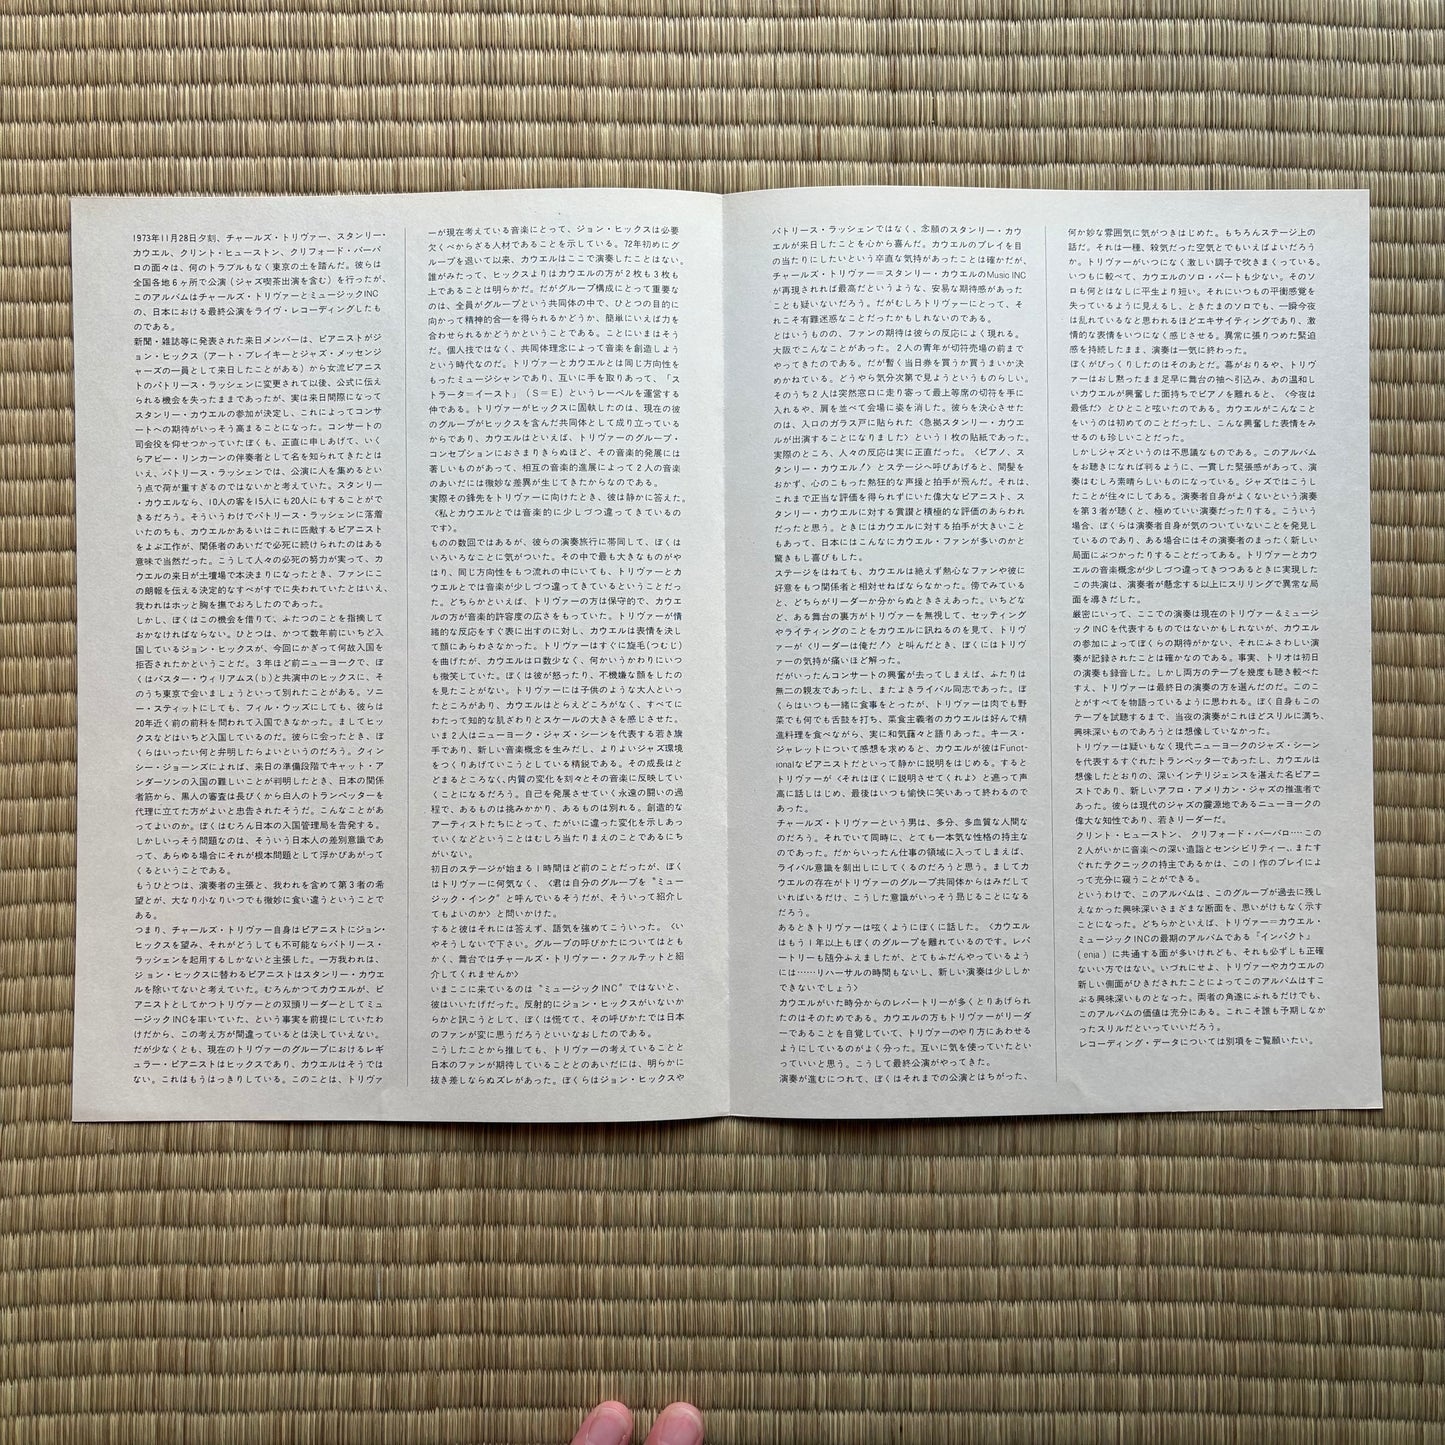 1973年11月28日夕刻、チャールズ・トリヴァー、スタンリー・
カウエル、クリント・ヒューストン、クリフォード・バーバ
ロの面々は、何のトラブルもなく東京の土を踏んだ。彼らは
全国各地6ヶ所で公演（ジャズ喫茶出演を含む）を行ったが、
このアルバムはチャールズ・トリヴァーとミュージックINC
の、日本における最終公演をライヴ・レコーディングしたも
のである。
新聞・雑誌等に発表された来日メンバーは、ピアニストがジ
ョン・ヒックス（アート・ブレイキーとジャズ・メッセンジ
ャーズの一員として来日したことがある）から女流ピアニス
トのパトリース・ラッシェンに変更されて以後、公式に伝え
られる機会を失ったままであったが、実は来日間際になって
スタンリー・カウエルの参加が決定し、これによってコンサ
ートへの期待がいっそう高まることになった。コンサートの
司会役を仰せつかっていたぼくも、正直に申しあげて、いく
らアビー・リンカーンの伴奏者として名を知られてきたとは
いえ、パトリース・ラッシェンでは、公演に人を集めるとい
う点で荷が重すぎるのではないかと考えていた。スタンリー
・カウエルなら、10人の客を15人にも20人にもすることがで
きるだろう。そういうわけでパトリース・ラッシェンに落着
いたのちも、カウエルかあるいはこれに匹敵するピアニスト
をよぶ工作が、関係者のあいだで必死に続けられたのはある
意味で当然だった。こうして人々の必死の努力が実って、カ
ウエルの来日が土壇場で本決まりになったとき、ファンにこ
の朗報を伝える決定的なすべがすでに失われていたとはいえ、
我われはホッと胸を撫でおろしたのであった。
しかし、ぼくはこの機会を借りて、ふたつのことを指摘して
おかなければならない。ひとつは、かつて数年前にいちど入
国しているジョン・ヒックスが、今回にかぎって何故入国を
拒否されたかということだ。3年ほど前ニューヨークで、ぼ
くはバスター・ウィリアムス(b)と共演中のヒックスに、そ
のうち東京で会いましょうといって別れたことがある。ソニ
ー・スティットにしても、フィル・ウッズにしても、彼らは
20年近く前の前科を問われて入国できなかった。ましてヒッ
クスなどはいちど入国しているのだ。彼らに会ったとき、ぼ
くらはいったい何と弁明したらよいというのだろう。クィン
シー・ジョーンズによれば、来日の準備段階でキャット・ア
ンダーソンの入国の難しいことが判明したとき、日本の関係
者筋から、黒人の審査は長びくから白人のトランペッターを
代理に立てた方がよいと忠告されたそうだ。こんなことがあ
ってよいのか。ぼくはむろん日本の入国管理局を告発する。
しかしいっそう問題なのは、そういう日本人の差別意識であ
って、あらゆる場合にそれが根本問題として浮かびあがって
くるということである。
もうひとつは、演奏者の主張と、我われを含めて第3者の希
望とが、大なり小なりいつでも微妙に食い違うということで
ある。
つまり、チャールズ・トリヴァー自身はピアニストにジョン・
ヒックスを望み、それがどうしても不可能ならパトリース・
ラッシェンを起用するしかないと主張した。一方我われは、
ジョン・ヒックスに替わるピアニストはスタンリー・カウエ
ルを除いてないと考えていた。むろんかつてカウエルが、ピ
アニストとしてかつトリヴァーとの双頭リーダーとしてミュ
ージックINCを率いていた、という事実を前提にしていたわ
けだから、この考え方が間違っているとは決していえない。
だが少なくとも、現在のトリヴァーのグループにおけるレギ
ュラー・ピアニストはヒックスであり、カウエルはそうでは
ない。これはもうはっきりしている。このことは、トリヴァ
ーが現在考えている音楽にとって、ジョン・ヒックスは必要
欠くべからざる人材であることを示している。72年初めにグ
ループを退いて以来、カウエルはここで演奏したことはない。
誰がみたって、ヒックスよりはカウエルの方が2枚も3枚も
上であることは明らかだ。だがグループ構成にとって重要な
のは、全員がグループという共同体の中で、ひとつの目的に
向かって精神的合一を得られるかどうか、簡単にいえば力を
合わせられるかどうかということである。ことにいまはそう
だ。個人技ではなく、共同体理念によって音楽を創造しよう
という時代なのだ。トリヴァーとカウエルとは同じ方向性を
もったミュージシャンであり、互いに手を取りあって、「ス
トラーター=イースト」（S=E）というレーベルを運営する
仲である。トリヴァーがヒックスに固執したのは、現在の彼
のグループがヒックスを含んだ共同体として成り立っている
からであり、カウエルはといえば、トリヴァーのグループ・
コンセプションにおさまりきらぬほど、その音楽的発展には
著しいものがあって、相互の音楽的進展によって2人の音楽
のあいだには微妙な差異が生じてきたからなのである。
実際その鋒先をトリヴァーに向けたとき、彼は静かに答えた。
〈私とカウエルとでは音楽的に少しづつ違ってきているので
す〉。
ものの数回ではあるが、彼らの演奏旅行に帯同して、ぼくは
いろいろなことに気がついた。その中で最も大きなものがや
はり、同じ方向性をもつ流れの中にいても、トリヴァーとカ
ウエルとでは音楽が少しづつ違ってきているということだっ
た。どちらかといえば、トリヴァーの方は保守的で、カウエ
ルの方が音楽的許容度の広さをもっていた。トリヴァーが情
緒的な反応をすぐ表に出すのに対し、カウエルは表情を決し
て顔にあらわさなかった。トリヴァーはすぐに旋毛(つむじ)
を曲げたが、カウエルは口数少なく、何かいうかわりにいつ
も微笑していた。ぼくは彼が怒ったり、不機嫌な顔をしたの
を見たことがない。トリヴァーには子供のような大人といっ
たところがあり、カウエルはとらえどころがなく、すべてに
わたって知的な肌ざわりとスケールの大きさを感じさせた。
いま2人はニューヨーク・ジャズ・シーンを代表する若き旗
手であり、新しい音楽概念を生みだし、よりよいジャズ環境
をつくりあげていこうとしている精鋭である。その成長はと
どまるところなく、内質の変化を刻々とその音楽に反映してい
くことになるだろう。自己を発展させていく永遠の闘いの過
程で、あるものは挑みかかり、あるものは別れる。創造的な
アーティストたちにとって、たがいに違った変化を示しあっ
ていくなどということはむしろ当たりまえのことであるにち
がいない。
初日のステージが始まる1時間ほど前のことだったが、ぼく
はトリヴァーに何気なく、〈君は自分のグループを〝ミュー
ジック・インク〟と呼んでいるそうだが、そういって紹介し
てもよいのか〉と問いかけた。
すると彼はそれには答えず、語気を強めてこういった。〈い
やそうしないで下さい。グループの呼びかたについてはとも
かく、舞台ではチャールズ・トリヴァー・クァルテットと紹
介してくれませんか〉
いまここに来ているのは〝ミュージックINC〟ではないと、
彼はいいたげだった。反射的にジョン・ヒックスがいないか
らかと訊こうとして、ぼくは慌てて、その呼びかたでは日本
のファンが変に思うだろうといいなおしたのである。
こうしたことから推しても、トリヴァーの考えていることと
日本のファンが期待していることとのあいだには、明らかに
抜き差しならぬズレがあった。ぼくらはジョン・ヒックスや
パトリース・ラッシェンではなく、念願のスタンリー・カウ
エルが来日したことを心から喜んだ。カウエルのプレイを目
の当たりにしたいという卒直な気持があったことは確かだが、
チャールズ・トリヴァー=スタンリー・カウエルのMusic INC
が再現されれば最高だというような、安易な期待感があった
ことも疑いないだろう。だがむしろトリヴァーにとって、そ
れこそ有難迷惑なことだったかもしれないのである。
とはいうものの、ファンの期待は彼らの反応によく現れる。
大阪でこんなことがあった。2人の青年が切符売場の前まで
やってきたのである。だが暫く当日券を買うか買うまいか決
めかねている。どうやら気分次第で見ようというものらしい。
そのうち2人は突然窓口に走り寄って最上等席の切符を手に
入れるや、肩を並べて会場に姿を消した。彼らを決心させた
のは、入口のガラス戸に貼られた〈急拠スタンリー・カウエル
が出演することになりました〉という1枚の貼紙であった。
実際のところ、人々の反応は実に正直だった。〈ピアノ、ス
タンリー・カウエル！〉とステージへ呼びあげると、間髪を
おかず、心のこもった熱狂的な声援と拍手が飛んだ。それは、
これまで正当な評価を得られずにいた偉大なピアニスト、ス
タンリー・カウエルに対する賞讃と積極的な評価のあらわれ
だったと思う。ときにはカウエルに対する拍手が大きいこと
もあって、日本にはこんなにカウエル・ファンが多いのかと
驚きもし喜びもした。
ステージをはねても、カウエルは絶えず熱心なファンや彼に
好意をもつ関係者と相対せねばならなかった。傍でみている
と、どちらがリーダーか分からぬときさえあった。いちどな
ど、ある舞台の裏方がトリヴァーを無視して、セッティング
やライティングのことをカウエルに訊ねるのを見て、トリヴ
ァーが〈リーダーは俺だ！〉と叫んだとき、ぼくにはトリヴ
ァーの気持が痛いほど解った。
だがいったんコンサートの興奮が去ってしまえば、ふたりは
無二の親友であったし、またよきライバル同志であった。ぼ
くらはいつも一緒に食事をとったが、トリヴァーは肉でも野
菜でも何でも舌鼓を打ち、菜食主義者のカウエルは好んで精
進料理を食べながら、実に和気藹々と語りあった。キース・
ジャレットについて感想を求めると、カウエルが彼はFunct-
ionalなピアニストだといって静かに説明をはじめる。すると
トリヴァーが〈それはぼくに説明させてくれよ〉と遮って声
高に話しはじめ、最後はいつも愉快に笑いあって終わるので
あった。
チャールズ・トリヴァーという男は、多分、多血質な人間な
のだろう。それでいて同時に、とても一本気な性格の持主な
のであった。だからいったん仕事の領域に入ってしまえば、
ライバル意識を剥出しにしてくるのだろうと思う。ましてカ
ウエルの存在がトリヴァーのグループ共同体からはみだして
いればいるだけ、こうした意識がいっそう昂じることになる
だろう。
あるときトリヴァーは呟くようにぼくに話した。〈カウエル
はもう1年以上もぼくのグループを離れているのです。レパ
ートリーも随分ふえましたが、とてもふだんやっているよう
には……リハーサルの時間もないし、新しい演奏は少ししか
できないでしょう〉
カウエルがいた時分からのレパートリーが多くとりあげられ
たのはそのためである。カウエルの方もトリヴァーがリーダ
ーであることを自覚していて、トリヴァーのやり方にあわせる
ようにしているのがよく分った。互いに気を使っていたとい
っていいと思う。こうして最終公演がやってきた。
演奏が進むにつれて、ぼくはそれまでの公演とはちがった、
何か妙な雰囲気に気がつきはじめた。もちろんステージ上の
話だ。それは一種、殺気だった空気とでもいえばよいだろう
か。トリヴァーがいつになく激しい調子で吹きまくっている。
いつもに較べて、カウエルのソロ・パートも少ない。そのソ
ロも何とはなしに平生より短い。それにいつもの平衡感覚を
失っているように見えるし、ときたまのソロでも、一瞬今夜
は乱れているなと思われるほどエキサイティングであり、激
情的な表情をいつになく感じさせる。異常に張りつめた緊迫
感を持続したまま、演奏は一気に終わった。
ぼくがびっくりしたのはそのあとだ。幕がおりるや、トリヴ
ァーはおし黙ったまま足早に舞台の袖へ引込み、あの温和し
いカウエルが興奮した面持ちでピアノを離れると、〈今夜は
最低だ〉とひとこと呟いたのである。カウエルがこんなこと
をいうのは初めてのことだったし、こんな興奮した表情をみ
せるのも珍しいことだった。
しかしジャズというのは不思議なものである。このアルバム
をお聴きになれば判るように、一貫した緊張感があって、演
奏はむしろ素晴らしいものになっている。ジャズではこうし
たことが往々にしてある。演奏者自身がよくないという演奏
を第3者が聴くと、極めていい演奏だったりする。こういう
場合、ぼくらは演奏者自身が気のついていないことを発見し
ているのであり、ある場合にはその演奏者のまったく新しい
局面にぶつかったりすることだってある。トリヴァーとカウ
エルの音楽概念が少しづつ違ってきつつあるときに実現した
この共演は、演奏者が懸念する以上にスリリングで異常な局
面を導きだした。
厳密にいって、ここでの演奏は現在のトリヴァー&ミュージ
ックINCを代表するものではないかもしれないが、カウエル
の参加によってぼくらの期待がかない、それにふさわしい演
奏が記録されたことは確かなのである。事実、トリオは初日
の演奏も録音した。しかし両方のテープを幾度も聴き較べた
すえ、トリヴァーは最終日の演奏の方を選んだのだ。このこ
とがすべてを物語っているように思われる。ぼく自身もこの
テープを試聴するまで、当夜の演奏がこれほどスリルに満ち、
興味深いものであろうとは想像していなかった。
トリヴァーは疑いもなく現代ニューヨークのジャズ・シーン
を代表するすぐれたトランペッターであったし、カウエルは
想像したとおりの、深いインテリジェンスを湛えた名ピアニ
ストであり、新しいアフロ・アメリカン・ジャズの推進者で
あった。彼らは現代のジャズの震源地であるニューヨークの
偉大な知性であり、若きリーダーだ。
クリント・ヒューストン、クリフォード・バーバロ……この
2人がいかに音楽への深い造詣とセンシビリティー、またす
ぐれたテクニックの持主であるかは、この1作のプレイによ
って充分に窺うことができる。
というわけで、このアルバムは、このグループが過去に残し
えなかった興味深いさまざまな断面を、思いがけもなく示す
ことになった。どちらかといえば、トリヴァー=カウエル・
ミュージックINCの最期のアルバムである「インパクト」
(enja)に共通する面が多いけれども、それも必ずしも正確
ないい方ではない。いづれにせよ、トリヴァーやカウエルの
新しい側面がひきだされたことによってこのアルバムはすこ
ぶる興味深いものとなった。両者の角逐にふれるだけでも、
このアルバムの価値は充分にある。これこそ誰も予期しなか
ったスリルだといっていいだろう。
レコーディング・データについては別項をご覧願いたい。